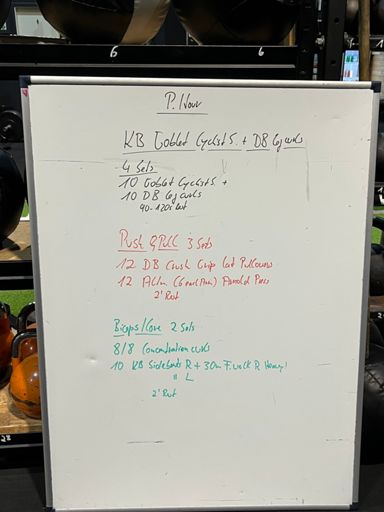 6 6
P. Hour
KB Goblet Cyclist S. + DB leg curls
4 Sets
10 Goblet Cyclist S. +
10 DB leg curls
90-120s Rest
Push & Pull 3 Sets
12 DB Crush Grip Lat Pullovers
12 Altn. (6 each Arm) Arnold Press
2' Rest
Biceps/Core 2 Sets
8/8 Concentration curls
10 KB Sidebends R + 30m F. walk R Heavy!
" L
2' Rest
28